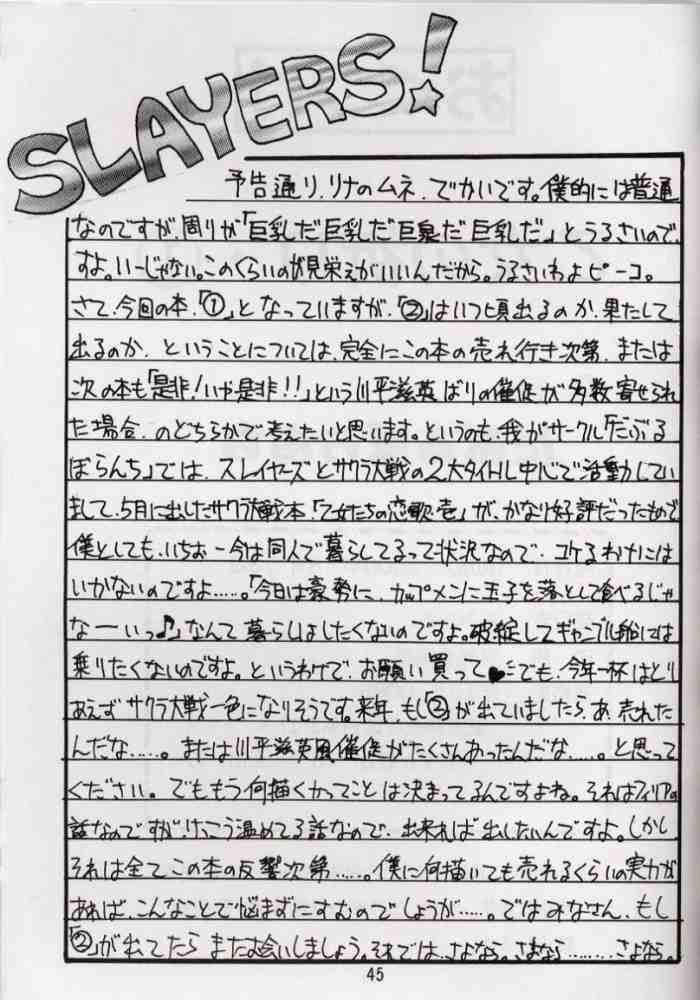 SLAYERS!
予告通り、リナのムネ、でかいです。僕的には普通
なのですが、周りが「巨乳だ巨乳だ巨泉だ巨乳だ」とうるさいので
すよ。いーじゃない。このくらいのが見栄えがいいんだから。うるさいわよピーコ。
さて、今回の本、「①」となっていますが、「②」はいつ頃出るのか、果たして
出るのか、ということについては、完全にこの本の売れ行き次第、または
次の本も「是非!いや是非!!」という川平滋英ばりの催促が多数寄せられ
た場合、のどちらかで考えたいと思います。というのも、我がサークル「だぶる
ぼらんち」では、スレイヤーズとサクラ大戦の2大タイトル中心で活動してい
まして、5月に出したサクラ大戦本「乙女たちの恋歌壱」が、かなり好評だったもので
僕としても、いちおー今は同人で暮らしてるって状況なので、コケるわけには
いかないのですよ……。「今日は豪勢に、カップメンに玉子を落として食べるじゃ
な〜いっ♪」なんて暮らしはしたくないのですよ。破綻してギャンブル船には
乗りたくないのですよ。というわけで、お願い買って♥でも、今年一杯はとり
あえずサクラ大戦一色になりそうです。来年、もし「②」が出ていましたら、あ、売れた
んだな……。または川平滋英風催促がたくさんあったんだな……。と思って
ください。でももう何描くかってことは決まってるんですよね。それはフィリアの
話なのですが、けっこう温めてる話なので、出来れば出したいんですよ。しかし
それは全てこの本の反響次第……。僕に何描いても売れるくらいの実力が
あれば、こんなことで悩まずにすむのでしょうが……。ではみなさん、もし
「②」が出てたらまたお会いしましょう。それでは、さよなら。さよなら………さよなら。
45